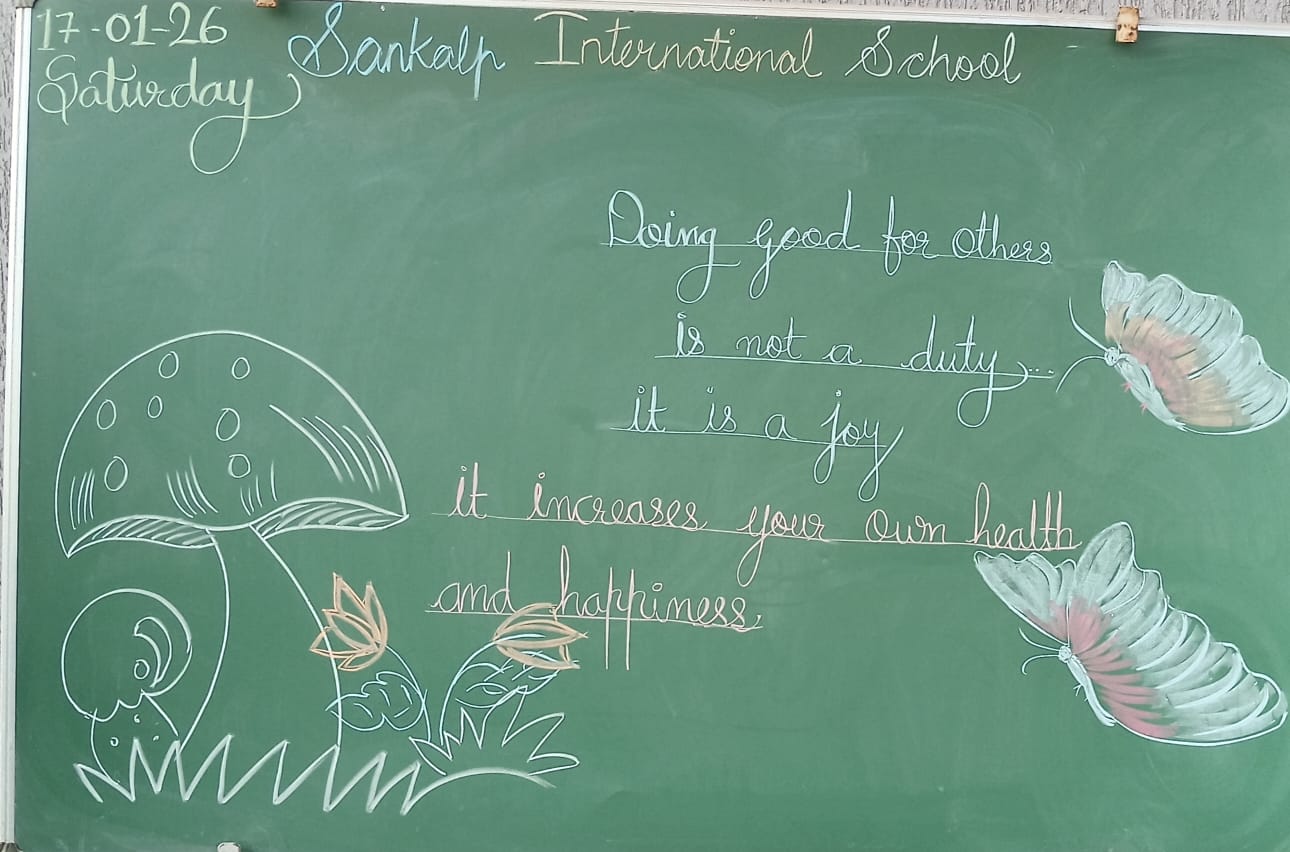 17-01-26 Sankalp International School
Saturday
Doing good for others
is not a duty...
it is a joy
it increases your own health
and happiness.